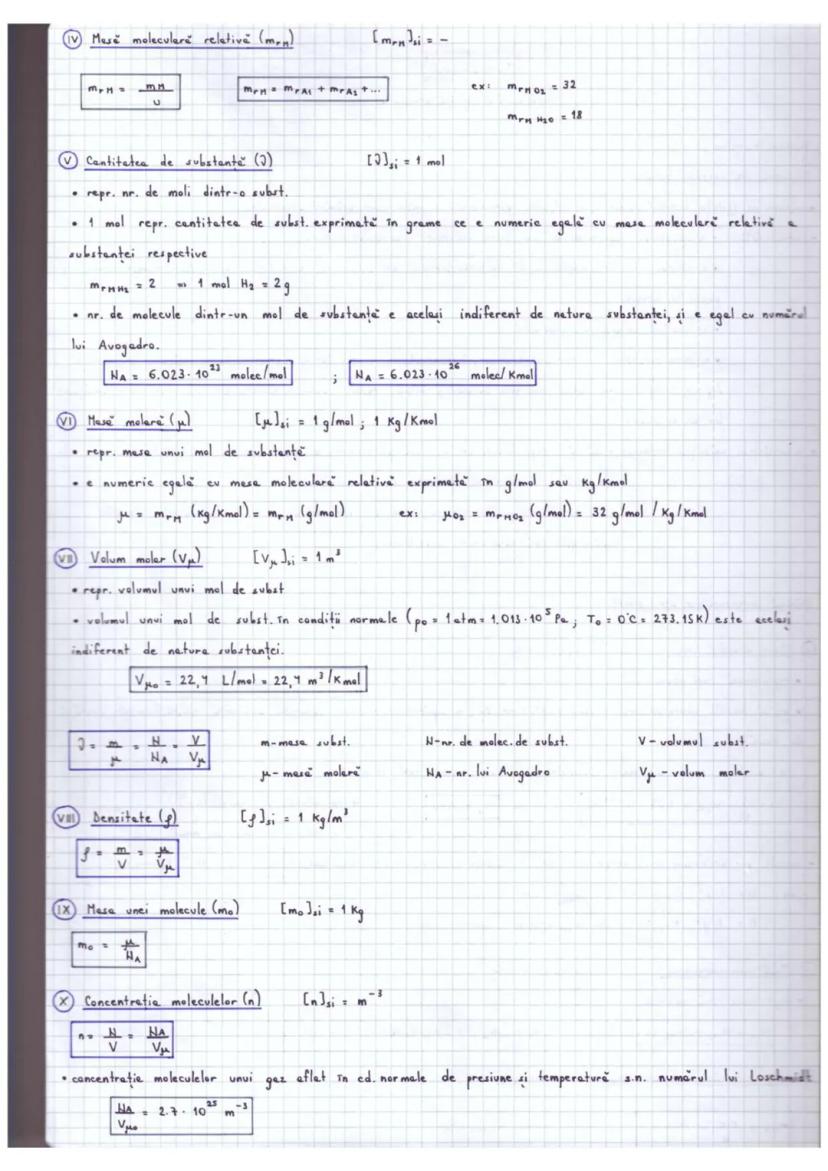 IV Masă moleculară relativă (mrM) [mrM]si = -
mrM = mM/u mrM = mrA1 + mrA2 + ... ex: mrM O2 = 32
mrM H2O = 18
V Cantitatea de substanță (ν) [ν]si = 1 mol
• repr. nr. de moli dintr-o subst.
• 1 mol repr. cantitatea de subst. exprimată în grame ce e numeric egală cu masa moleculară relativă a
substanței respective
mrMH2 = 2 ⇒ 1 mol H2 = 2g
• nr. de molecule dintr-un mol de substanță e același indiferent de natura substanței, și e egal cu numărul
lui Avogadro.
NA = 6.023 · 10^23 molec/mol ; NA = 6.023 · 10^26 molec/Kmol
VI Masă molară (μ) [μ]si = 1 g/mol ; 1 Kg/Kmol
• repr. masa unui mol de substanță
• e numeric egală cu masa moleculară relativă exprimată în g/mol sau Kg/Kmol
μ = mrM (Kg/Kmol) = mrM (g/mol) ex: μO2 = mrMO2 (g/mol) = 32 g/mol / Kg/Kmol
VII Volum molar (Vμ) [Vμ]si = 1 m³
• repr. volumul unui mol de subst
• volumul unui mol de subst. în condiții normale (p0 = 1 atm = 1.013 · 10^5 Pa ; T0 = 0°C = 273.15K) este același
indiferent de natura substanței.
Vμ0 = 22,4 L/mol = 22,4 m³/Kmol
ν = m/μ = N/NA = V/Vμ m-masa subst. N-nr. de molec. de subst. V - volumul subst.
μ - masă molară NA - nr. lui Avogadro Vμ - volum molar
VIII Densitate (ρ) [ρ]si = 1 Kg/m³
ρ = m/V = μ/Vμ
IX Masa unei molecule (m0) [m0]si = 1 Kg
m0 = μ/NA
X Concentrația moleculelor (n) [n]si = m^-3
n = N/V = NA/Vμ
• concentrația moleculelor unui gaz aflat în cd. normale de presiune și temperatură s.n. numărul lui Loschmidt
NA/Vμ0 = 2.7 · 10^25 m^-3